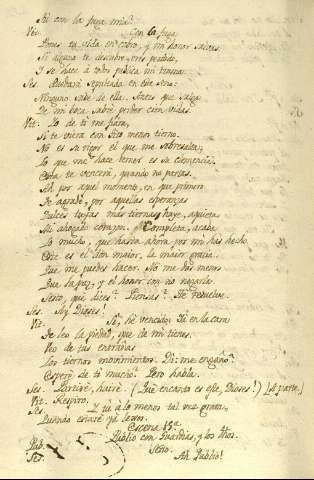 Ni con la fuga mia?
Vit. Con la fuga
Pones tu vida en cobro, y mi honor salvas.
Si alguno te descubre, eres perdido,
Y se hace a todos publica mi trama.
Ses. sepultada en este seno:
Ninguno sabe de ella. Antes que salga
De mi boca sabré perder cien vidas.
Vit. Yo de ti me fiara,
Si te viera con Tito menos tierno.
No es su rigor el que me sobresalta,
Lo que me hace temer es su clemencia.
Esta te vencerá, quando no partas.
Ah por aquel momento, en que primero
Te agradé, por aquellas esperanzas
Dulces tuyas más tiernas, huye, aquieta
Mi ahogado corazon. Completa, acaba
Lo mucho, que hasta ahora por mi has hecho.
Este es el don maior, la maior gracia,
Que me puedes hacer. No me das menos
Que la paz, y el honor con no negarla.
Sesto, que dices? Piensas? Te resuelve.
Ses. Ay Dioses!
Vit. Si, sé vencido: Ya en la cara
Te leo la piedad, que de mi tienes.
Veo de tus entrañas
Los tiernos movimientos. Di: me engaño?
Esperé de ti mucho? Pero habla.
Ses. Partiré, haré. (Que encanto es este, Dioses!) (A parte.)
Vit. Respiro.
Ses. Y tú á lo menos tal vez
Quando estaré ya lexos.
Escena 15ª
Publio con Guardias, y los dhos.
Pub. Sesto.
Ses. Ah Publio!